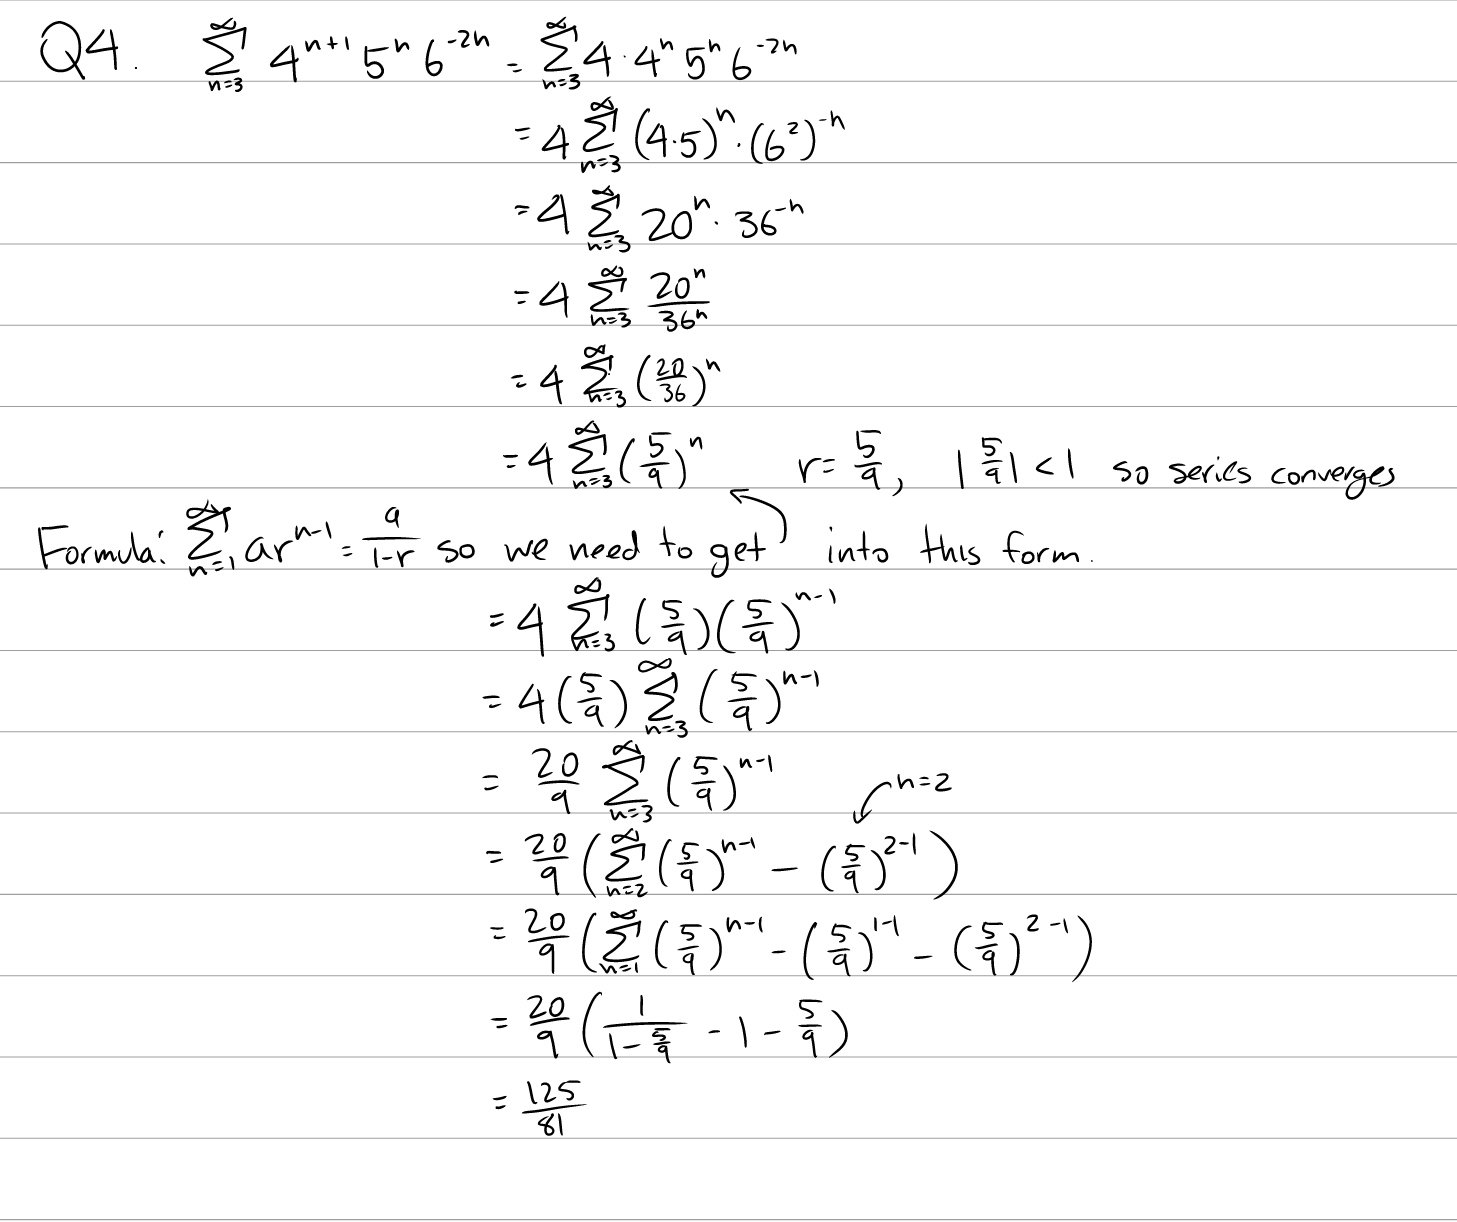 Q4. $\sum_{n=3}^{\infty} 4^{n+1} 5^n 6^{-2n} = \sum_{n=3}^{\infty} 4 \cdot 4^n 5^n 6^{-2n}$
$= 4 \sum_{n=3}^{\infty} (4 \cdot 5)^n \cdot (6^2)^{-n}$
$= 4 \sum_{n=3}^{\infty} 20^n \cdot 36^{-n}$
$= 4 \sum_{n=3}^{\infty} \frac{20^n}{36^n}$
$= 4 \sum_{n=3}^{\infty} \left(\frac{20}{36}\right)^n$
$= 4 \sum_{n=3}^{\infty} \left(\frac{5}{9}\right)^n$ $r = \frac{5}{9}, \left|\frac{5}{9}\right| < 1$ so series converges
Formula: $\sum_{n=1}^{\infty} ar^{n-1} = \frac{a}{1-r}$ so we need to get into this form.
$= 4 \sum_{n=3}^{\infty} \left(\frac{5}{9}\right)\left(\frac{5}{9}\right)^{n-1}$
$= 4 \left(\frac{5}{9}\right) \sum_{n=3}^{\infty} \left(\frac{5}{9}\right)^{n-1}$
$= \frac{20}{9} \sum_{n=3}^{\infty} \left(\frac{5}{9}\right)^{n-1}$
n=2
$= \frac{20}{9} \left( \sum_{n=2}^{\infty} \left(\frac{5}{9}\right)^{n-1} - \left(\frac{5}{9}\right)^{2-1} \right)$
$= \frac{20}{9} \left( \sum_{n=1}^{\infty} \left(\frac{5}{9}\right)^{n-1} - \left(\frac{5}{9}\right)^{1-1} - \left(\frac{5}{9}\right)^{2-1} \right)$
$= \frac{20}{9} \left( \frac{1}{1-\frac{5}{9}} - 1 - \frac{5}{9} \right)$
$= \frac{125}{81}$